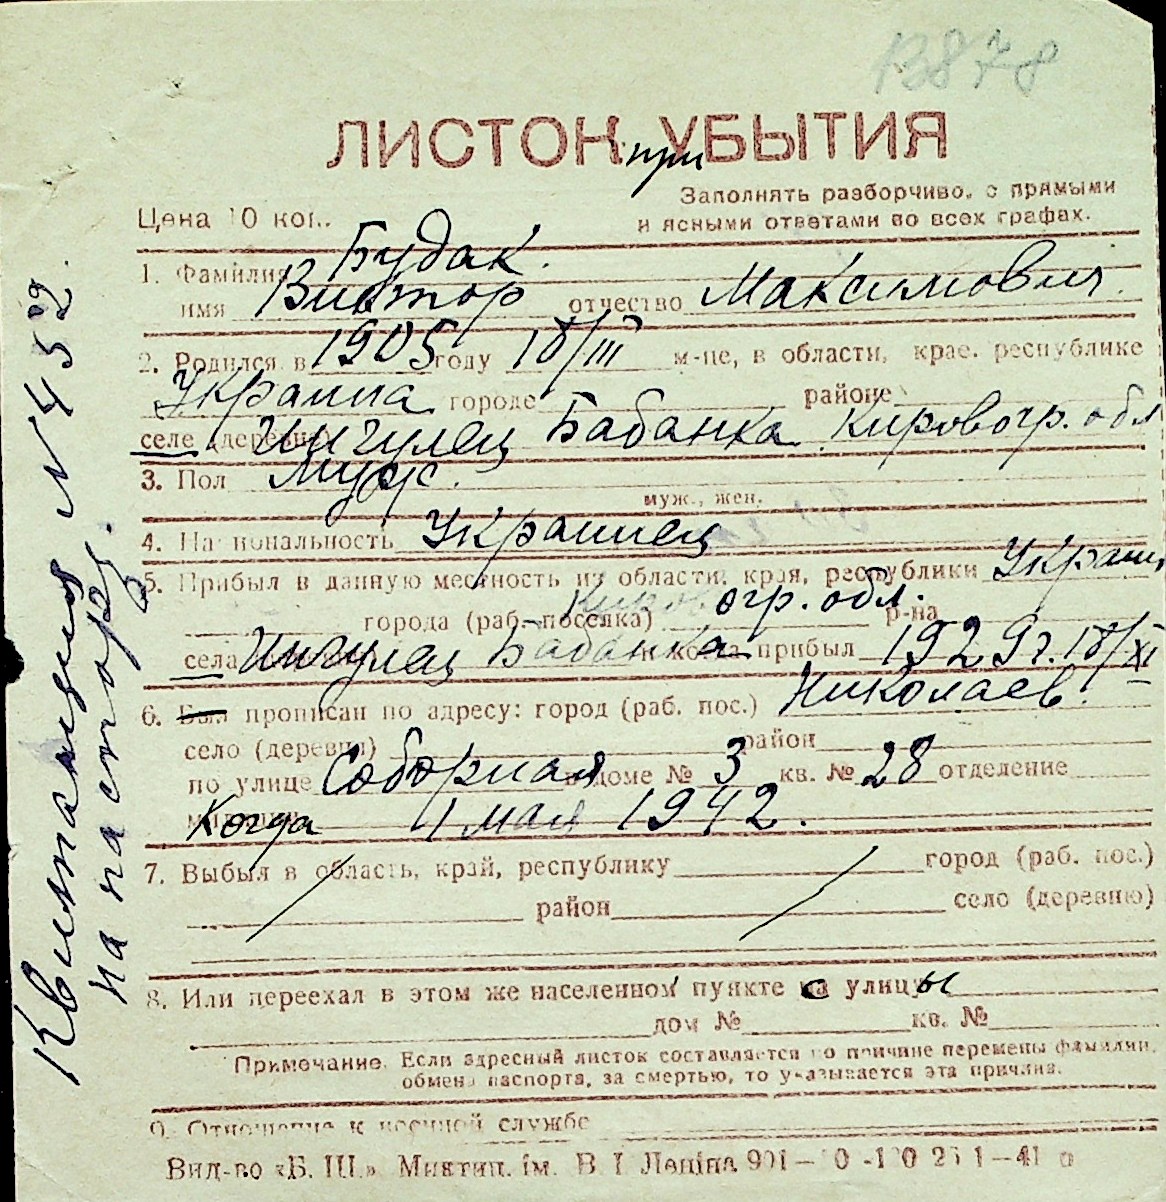 В878
ЛИСТОК при УБЫТИЯ
Заполнять разборчиво, с прямыми
и ясными ответами во всех графах.
Цена 10 коп.
1. Фамилия Будак.
имя Виктор отчество Максимович.
2. Родился в 1905 году 18/III м-це, в области, крае, республике
Украина городе районе
селе (деревне) Ингулец Бабанка Кировогр. обл
3. Пол Муж.
муж., жен.
4. Национальность Украинец
5. Прибыл в данную местность из области, края, республики Украин
города (раб. поселка) Кировогр. обл. р-на
села Ингулец Бабанка и когда прибыл 1929 г. 18/XI
6. Был прописан по адресу: город (раб. пос.) Николаев.
село (деревня) район
по улице Соборная в доме № 3 кв. № 28 отделение
Когда 1 мая 1942.
7. Выбыл в область, край, республику город (раб. пос.)
район село (деревню)
8. Или переехал в этом же населенном пункте с улицы
дом № кв. №
Примечание. Если адресный листок составляется по причине перемены фамилии,
обмена паспорта, за смертью, то указывается эта причина.
9. Отношение к военной службе
Вид-во «Б. Ш.» Миктип. ім. В. І. Леніна 901—
Квитанция № 452.
на паспорт.